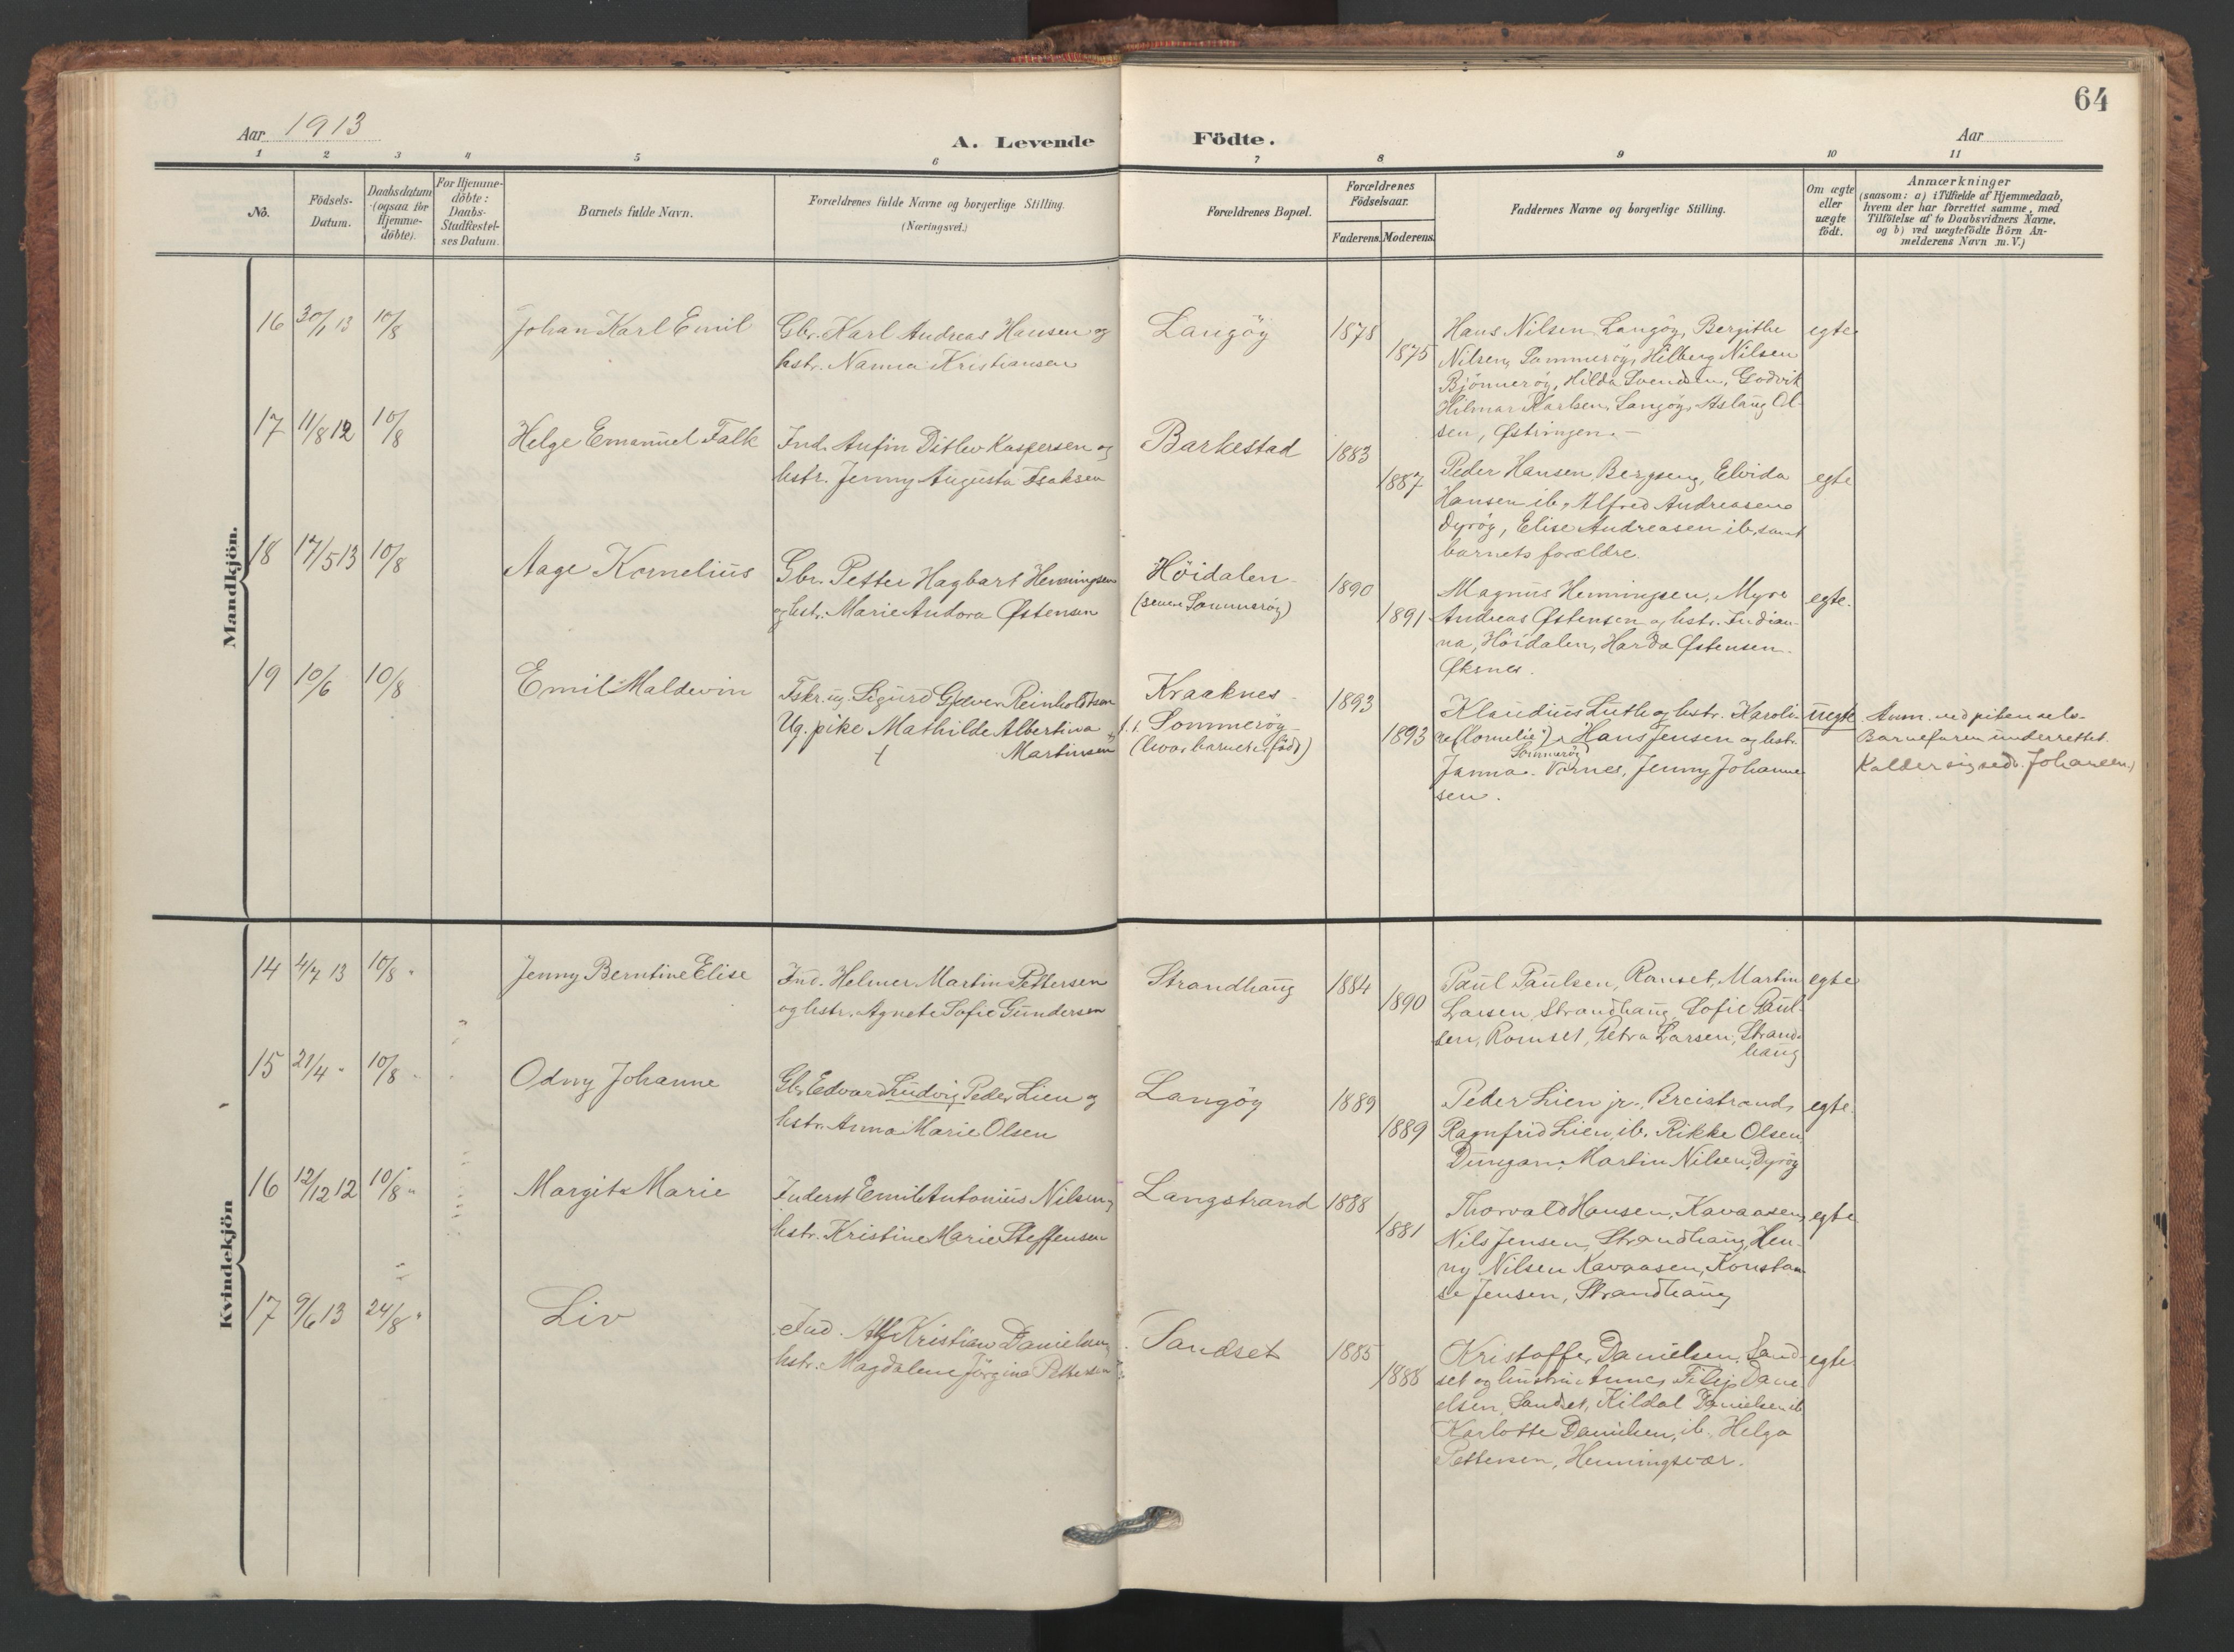 64
Aar 1913
A. Levende Födte.
Aar
1 2 3 4 5 6 7 8 9 10 11
No.
Födsels-
Datum.
Daabsdatum
(ogsaa for
Hjemme-
döbte).
For Hjemme-
döbte:
Daabs-
Stadfæstel-
ses Datum.
Barnets fulde Navn.
Forældrenes fulde Navne og borgerlige Stilling.
(Næringsvei.)
Forældrenes Bopæl.
Forældrenes
Födselsaar.
Faderens. Moderens.
Faddernes Navne og borgerlige Stilling.
Om ægte
eller
uægte
födt.
Anmærkninger
(saasom: a) i Tilfælde af Hjemmedaab,
hvem der har forrettet samme, med
Tilföielse af to Daabsvidners Navne,
og b) ved uægtefödte Börn An-
melderens Navn m. V.)
Mandkjön.
16 30/1 13 10/8 Johan Karl Emil
Gbr. Karl Andreas Hansen og
hstr. Nanna Kristiansen
Langöy 1878 1875
Hans Nilsen Langöy, Bergithe
Nilsen, Sommeröy, Hilberg Nilsen
Bjönneröy, Hilda Svendsen, Godvik
Hilmar Karlsen, Langöy, Aslaug Ol-
sen, Østringen.
egte
17 11/8 12 10/8 Helge Emanuel Falk
Ind. Anfin Ditlev Kaspersen og
hstr. Jenny Augusta Isaksen
Barkestad 1883 1887
Peder Hansen, Bergseng, Elvida
Hansen ib., Alfred Andreasen
Dyröy, Elise Andreasen ib. samt
barnets forældre.
egte
18 17/5 13 10/8 Aage Kornelius
Gbr. Petter Hagbart Henningsen
og hstr. Marie Andora Østensen
Höidalen
(senere Sommeröy)
1890 1891
Magnus Henningsen, Myre
Andreas Østensen og hstr. Indian-
na, Höidalen, Harda Østensen
Øksnes.
egte.
19 10/6 10/8 Emil Maldevin
Fskr. ug. Sigurd Gjæver Reinholdtsen
Ug. pike Mathilde Albertina
Martinsen
Kraaknes
f. t. Sommeröy
(hvor barnet er født)
1893 1893
Klaudius Luth og hstr. Karoli-
ne (Kornelie), Hans Jensen og hstr.
Sommeröy
Janna. Vornes, Jenny Johanne-
sen.
uegte
Anm. ved piken selv.
Barnefaren underrettet.
Kalder sig ved. Johansen)
Kvindekjön
14 4/7 13 10/8 " Jenny Berntine Elise
Ind. Helmer Martin Pettersen
og hstr. Agnete Sofie Gundersen
Strandhaug 1884 1890
Paul Paulsen, Ramset, Martin
Larsen, Strandhaug, Sofie Paul-
sen, Romset, Petra Larsen, Strand-
haug
egte
15 21/4 " 10/8 " Odny Johanne
Gbr Edvard Ludvig Peder Lien og
hstr. Anna Marie Olsen
Langöy 1889 1889
Peder Lien jr., Breistrand,
Ragnfrid Lien, ib. Rikke Olsen
Dungan, Martin Nilsen, Dyröy
egte.
16 12/12 12 10/8 " Margit Marie
Inderst Emil Antonius Nilsen og
hstr. Kristine Marie Steffensen
Langstrand 1888 1881
Thorvald Hansen, Kavaasen,
Nils Jensen, Strandhaug, Hen-
ny Nilsen Kavaasen, Konstan-
se Jensen, Strandhaug
egte
17 9/6 13 24/8 " Liv
Ind. Alf Kristian Danielsen og
hstr. Magdalene Jörgine Pettersen
Sandset 1885 1888
Kristoffer Danielsen, Sand-
set og hustru Anne, Filip Dani-
elsen, Sandset, Kildal Danielsen ib
Karlotte Danielsen, ib. Helga
Pettersen, Henningsvær.
egte.